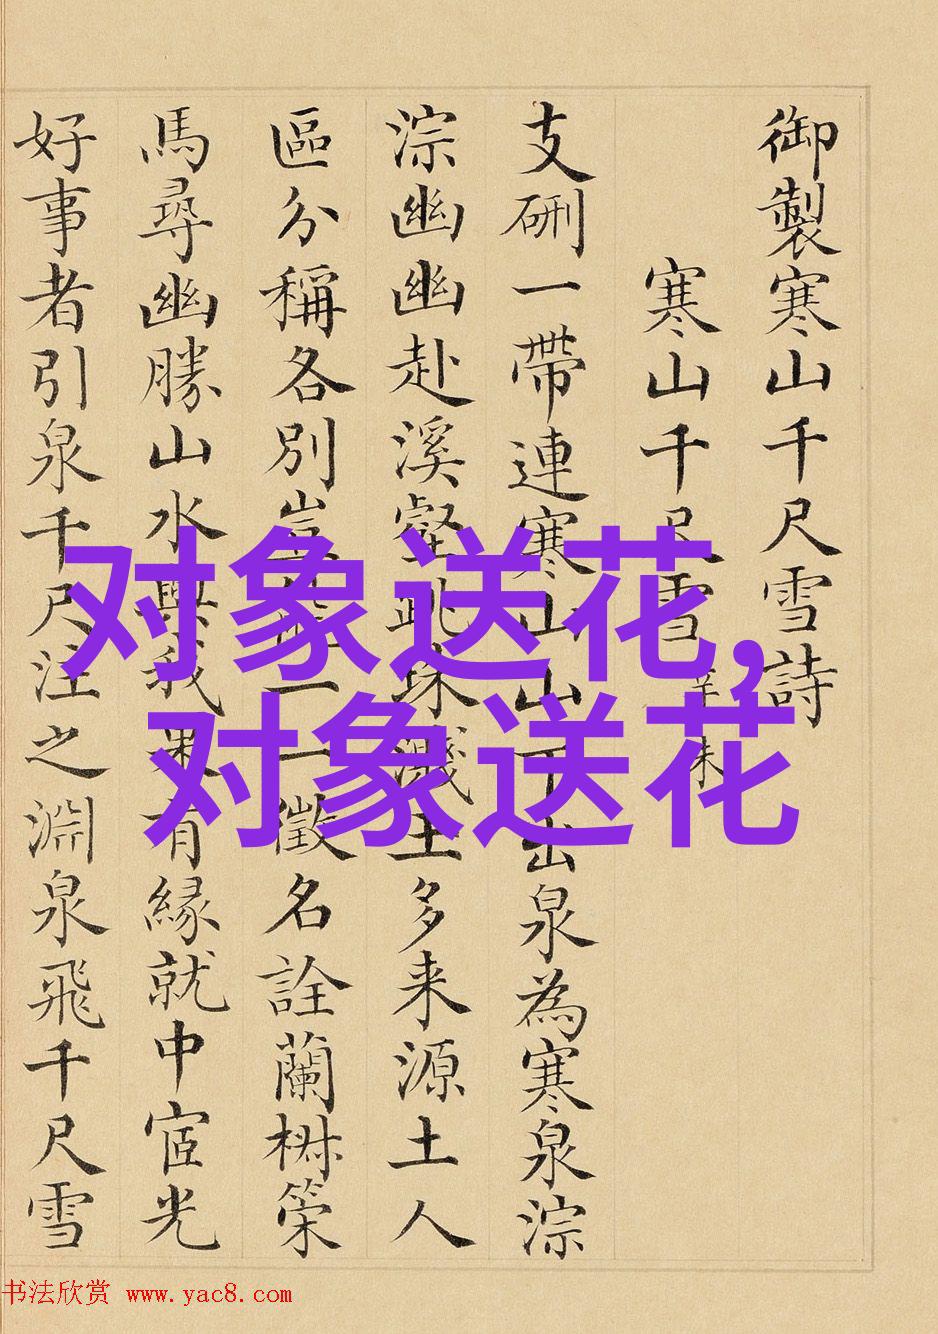 御製寒山千尺雪詩
寒山千尺雪 辛未
支硎一帶連寒山山下出泉為寒泉淙
淙幽幽赴溪壑跳珠濺玉多来源土人
區分稱各別豈能一一徵名詮蘭策
馬尋幽勝山水與我果有緣就中宧光
好事者引泉千尺注之淵泉飛千尺雪
对象送花,
对象送花
书法欣赏 www.yac8.com